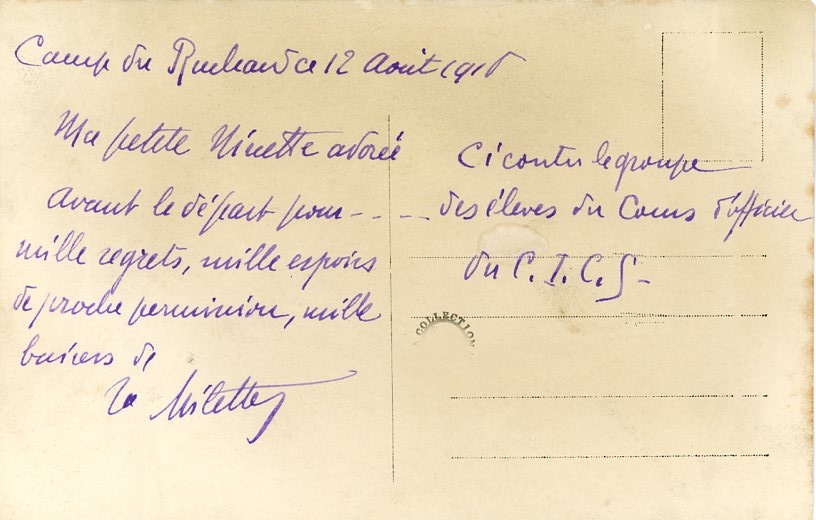 Camp du Ruchard ce 12 Août 191
Ma petite Ninette adorée
Avant le départ pour - - - -
mille regrets, mille espoirs
de proche permission, mille
baisers de
Ci contre le groupe
des élèves du Cours d'officier
du C. I. C. S -
COLLECTION